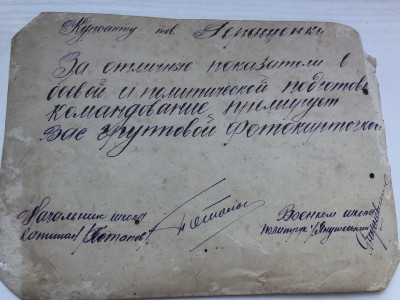 Курсанту тов Лепещенко
За отличные показатели в
боевой и политической подготов
командование премирует
Вас групповой фотокарточкой
Начальник школы
капитан /Потапов/
Военком школы
политрук /Янушевский/